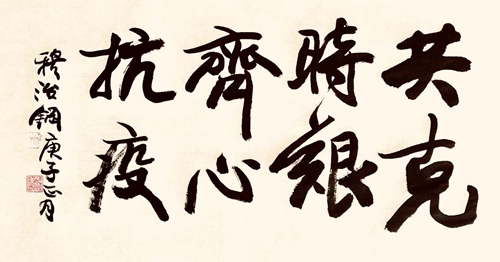 共克
時艱
齊心
抗疫
穆治鋼庚子正月